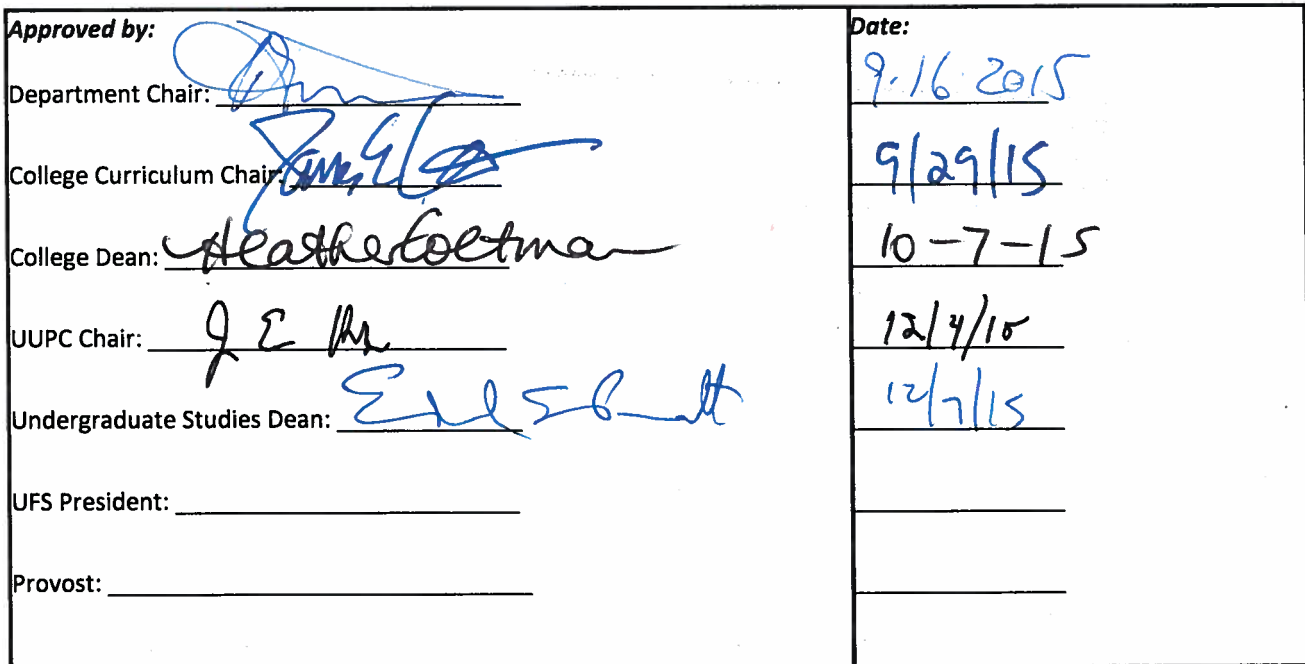 Approved by: Date:
Department Chair: 9.16.2015
College Curriculum Chair: 9/29/15
College Dean: Heather Coltman 10-7-15
UUPC Chair: J E 12/4/15
Undergraduate Studies Dean: 12/7/15
UFS President:
Provost: